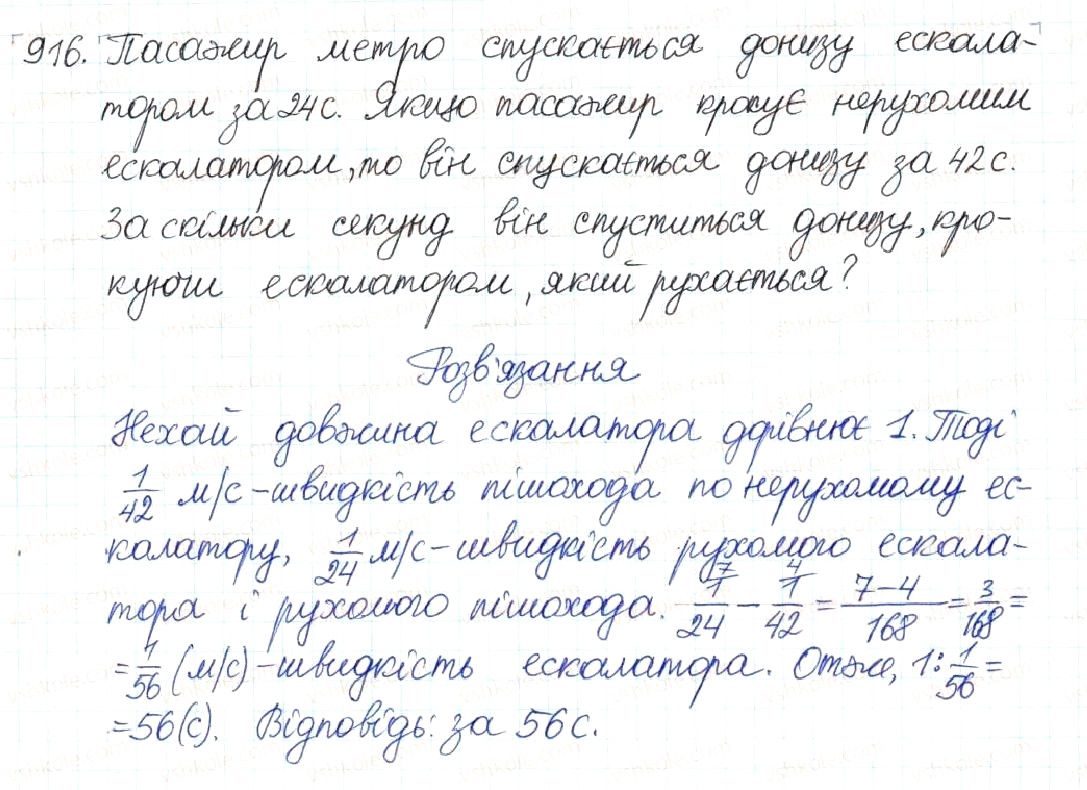 916. Пасажир метро спускається донизу ескала-
тором за 24 с. Якщо пасажир крокує нерухомим
ескалатором, то він спускається донизу за 42 с.
За скільки секунд він спуститься донизу, кро-
куючи ескалатором, який рухається?
Розв'язання
Нехай довжина ескалатора дорівнює 1. Тоді
1/42 м/с – швидкість пішохода по нерухомому ес-
калатору, 1/24 м/с – швидкість рухомого ескала-
тора і рухомого пішохода. 1/24 ⁷ – 1/42 ⁴ = (7–4)/168 = 3/168 =
= 1/56 (м/с) – швидкість ескалатора. Отже, 1 : 1/56 =
= 56 (с). Відповідь: за 56 с.